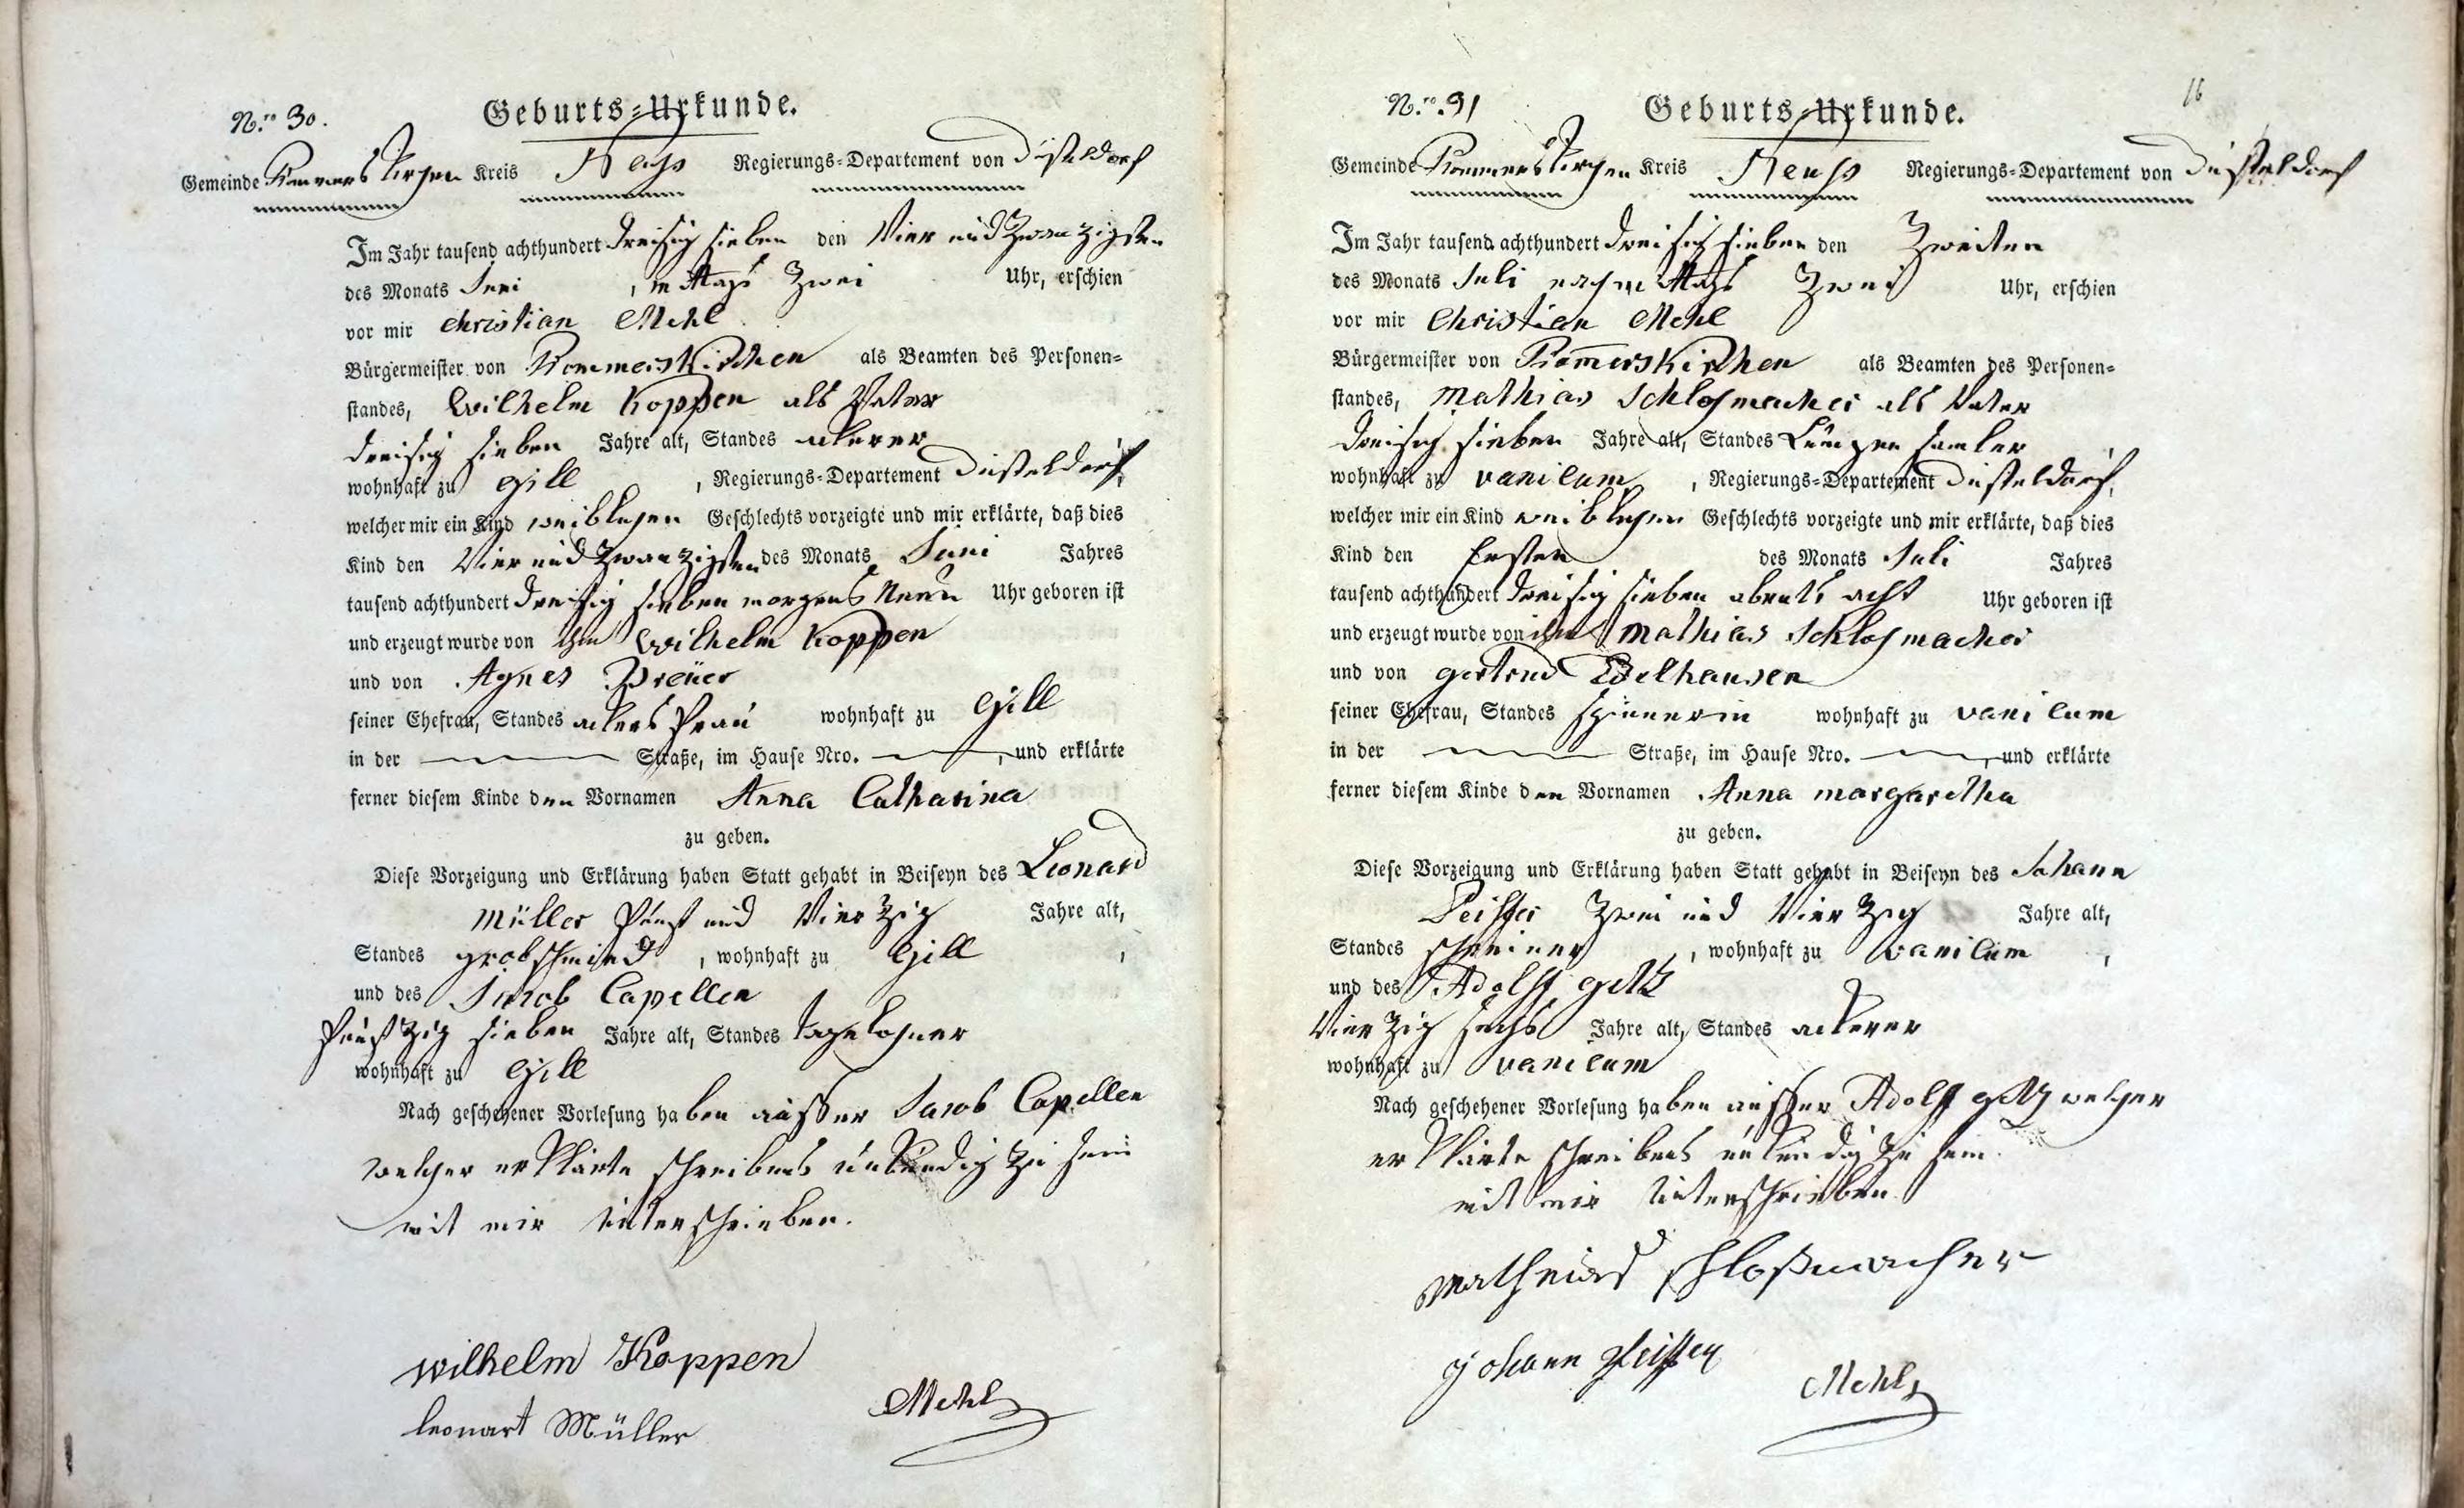 N.ro 30.
Geburts-Urkunde.
Gemeinde Rommerskirchen Kreis Neuss Regierungs-Departement von Düsseldorf
Im Jahr tausend achthundert dreisig sieben den Vier und Zwanzigsten
des Monats Juni , mittags Zwei Uhr, erschien
vor mir Christian Mehl
Bürgermeister von Rommerskirchen als Beamten des Personen-
standes, Wilhelm Koppen als Vater
dreisig sieben Jahre alt, Standes ackerer
wohnhaft zu Gill , Regierungs-Departement Düsseldorf,
welcher mir ein Kind weiblichen Geschlechts vorzeigte und mir erklärte, daß dies
Kind den Vier und Zwanzigsten des Monats Juni Jahres
tausend achthundert dreisig sieben morgens Neun Uhr geboren ist
und erzeugt wurde von ihm Wilhelm Koppen
und von Agnes Breüer
seiner Ehefrau, Standes ackers Frau wohnhaft zu Gill
in der Straße, im Hause Nro. , und erklärte
ferner diesem Kinde den Vornamen Anna Catharina
zu geben.
Diese Vorzeigung und Erklärung haben Statt gehabt in Beiseyn des Leonard
Müller Fünf und Vierzig Jahre alt,
Standes grobschmied , wohnhaft zu Gill ,
und des Jacob Capellen
Fünfzig sieben Jahre alt, Standes tagelohner
wohnhaft zu Gill
Nach geschehener Vorlesung haben ausser Jacob Capellen
welcher erklärte schreibens unkundig zu sein
mit mir Unterschrieben.
Wilhelm Koppen
leonart Müller
Mehl
16
N.ro 31
Geburts-Urkunde.
Gemeinde Rommerskirchen Kreis Neuss Regierungs-Departement von Düsseldorf
Im Jahr tausend achthundert dreisig sieben den Zweiten
des Monats Juli nachmittags Zwei Uhr, erschien
vor mir Christian Mehl
Bürgermeister von Rom̅erskirchen als Beamten des Personen-
standes, Mathias Schlosmacher als Vater
dreisig sieben Jahre alt, Standes Lumpen samler
wohnhaft zu vanikum , Regierungs-Departement Düsseldorf,
welcher mir ein Kind weiblichen Geschlechts vorzeigte und mir erklärte, daß dies
Kind den Ersten des Monats Juli Jahres
tausend achthundert dreisig sieben abends acht Uhr geboren ist
und erzeugt wurde von ihm Mathias Schlosmacher
und von gertrud Edelhausen
seiner Ehefrau, Standes spinnerin wohnhaft zu vanikum
in der Straße, im Hause Nro. , und erklärte
ferner diesem Kinde den Vornamen Anna margaretha
zu geben.
Diese Vorzeigung und Erklärung haben Statt gehabt in Beiseyn des Johann
Peiffer Zwei und Vierzig Jahre alt,
Standes schreiner , wohnhaft zu vanikum ,
und des Adolff getz
Vierzig sechs Jahre alt, Standes ackerer
wohnhaft zu vanikum
Nach geschehener Vorlesung haben ausser Adolff getz welcher
erklärte schreibens unkundig zu sein
mit mir Unterschrieben.
Matheias schloßmacher
Johann Peiffer
Mehl